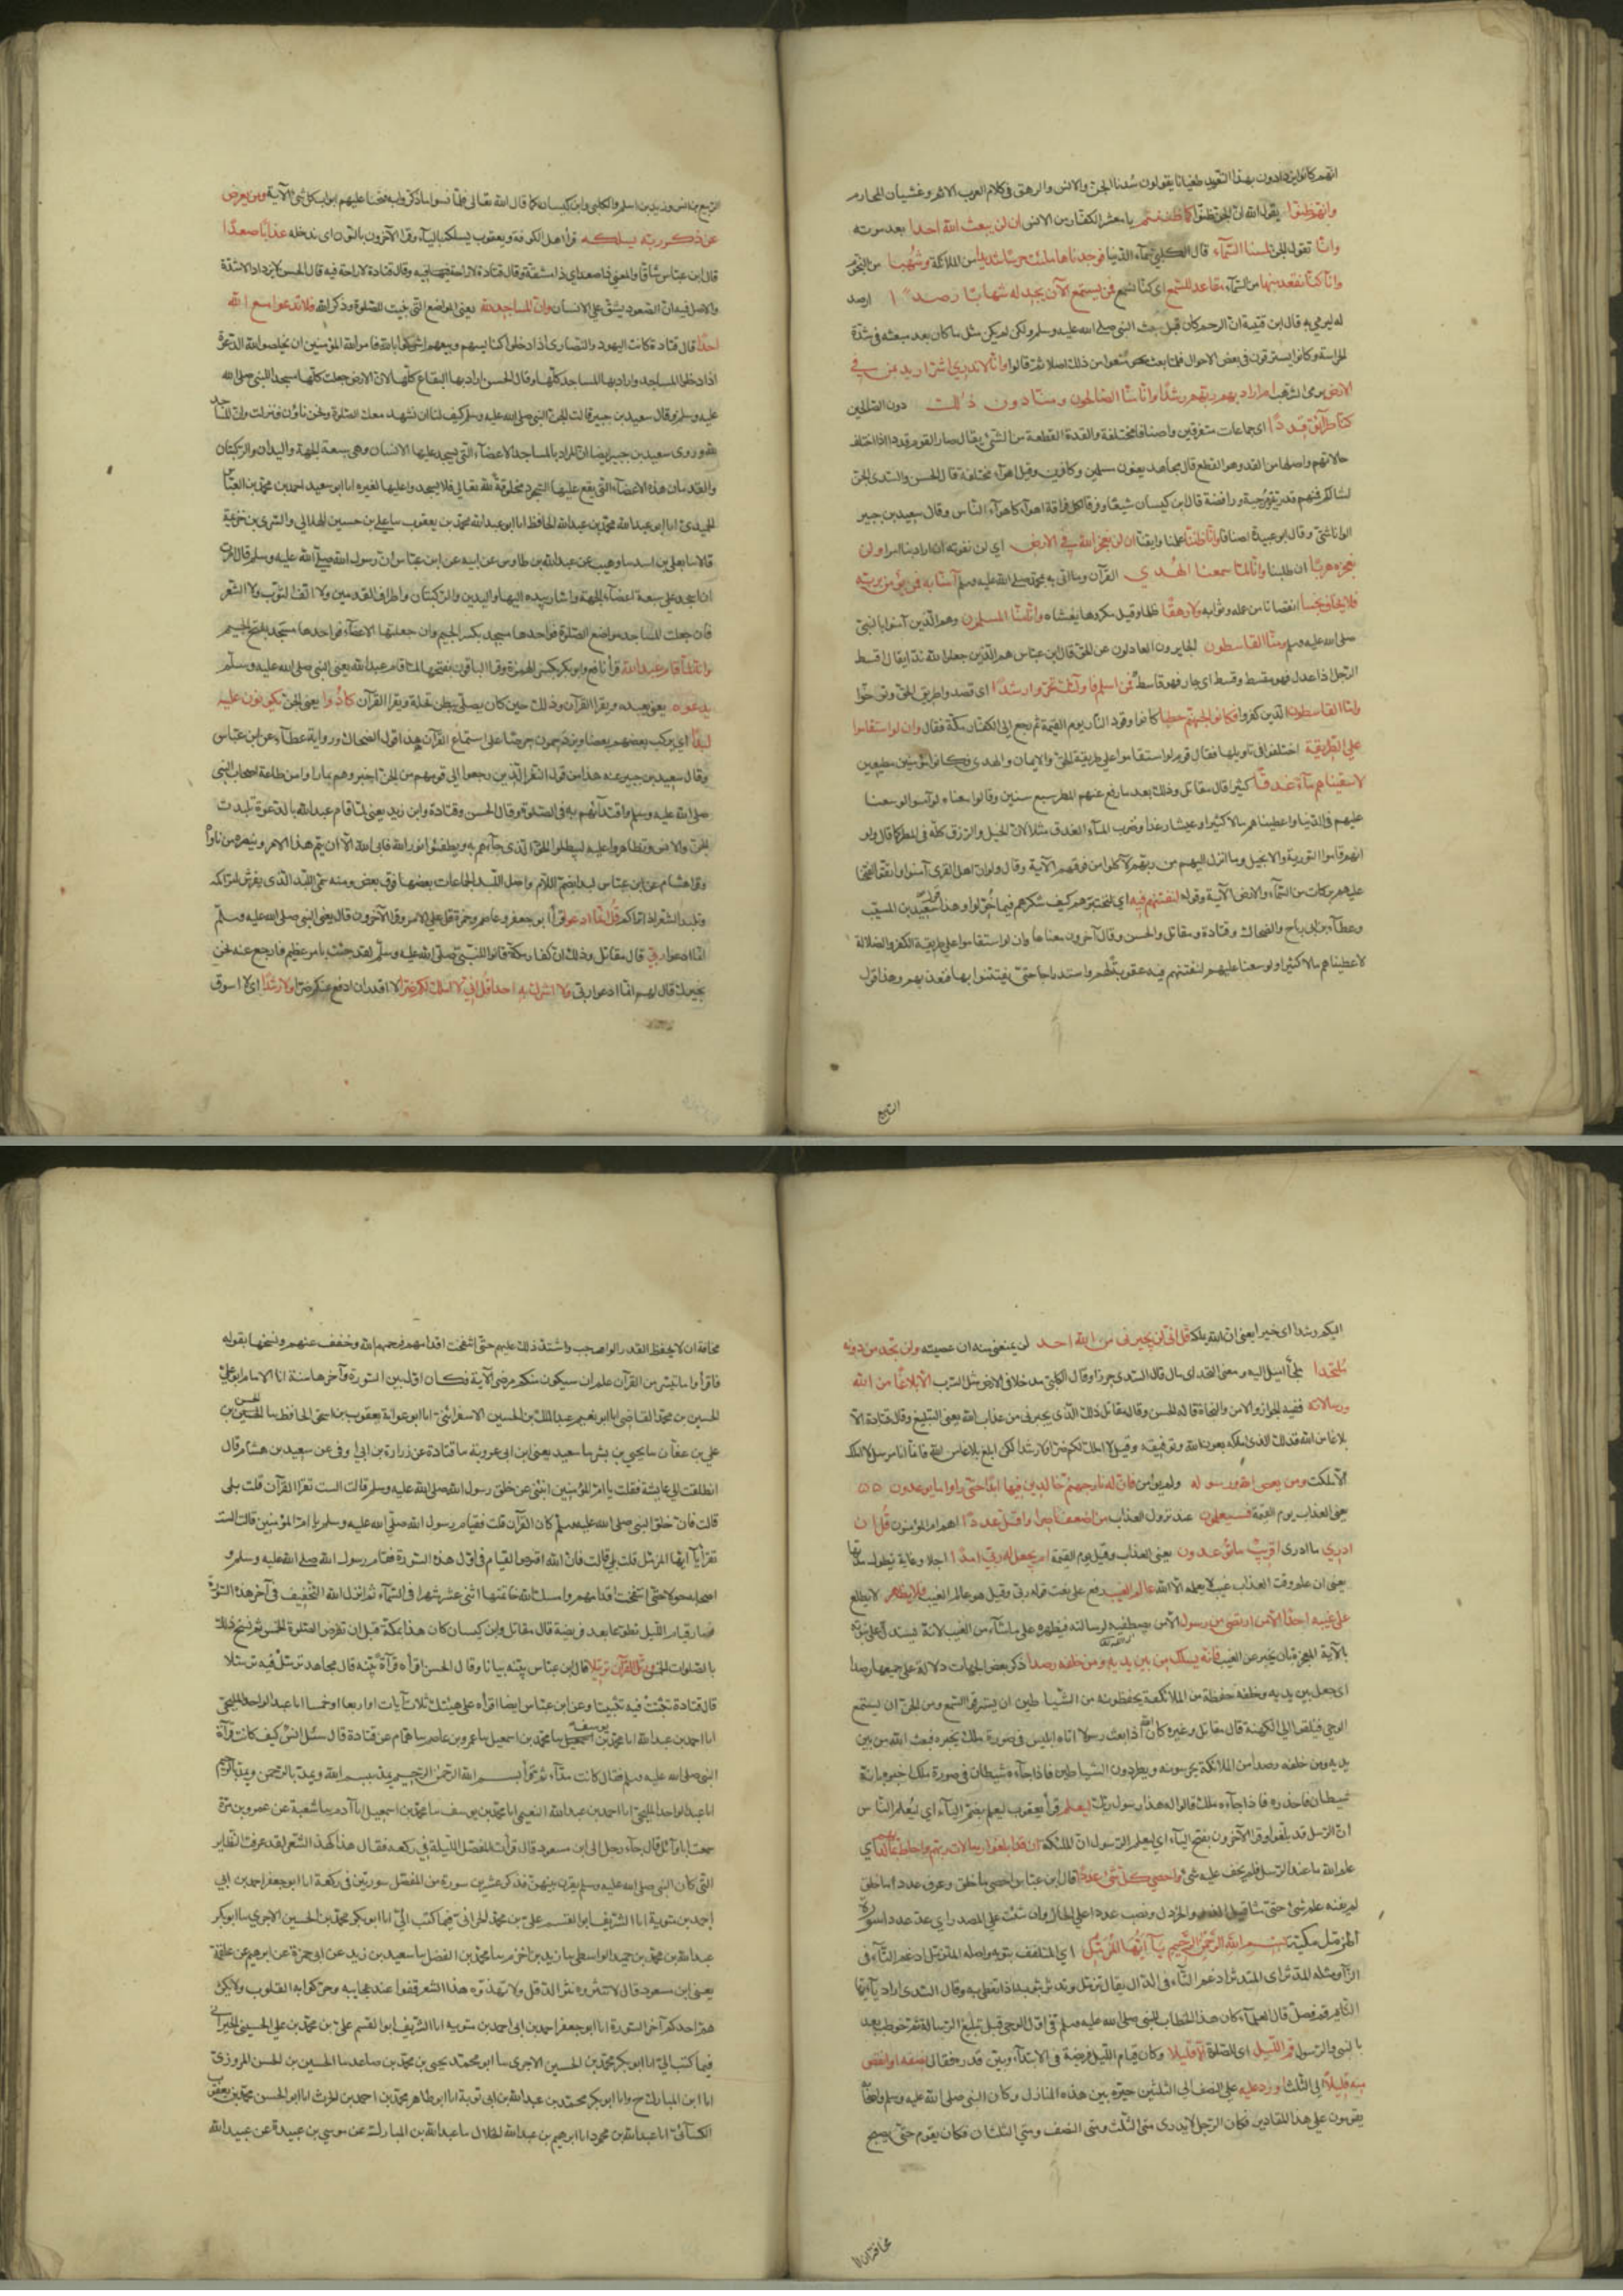 انهم كانوا يزدادون بهذا التعوذ طغيانا يقولون سُدنا الجن والانس والرهق فى كلام العرب الاثم وغشيان المحارم
وانهم ظنوا يقول الله ان الجن ظنوا كما ظننتم يا معشر الكفار من الانس ان لن يبعث الله احدا بعد موته
وانا تقول الجن لمسنا السماء قال الكلبى السماء الدنيا فوجدناها ملئت حرسا شديدا من الملائكة وشهبا من النجوم
وانا كنا نقعد منها من السماء مقاعد للسمع اى كنا نستمع فمن يستمع الآن يجد له شهابا رصدا ارصد
له ليرمى به قال ابن قتيبة ان الرجم كان قبل مبعث النبى صلى الله عليه وسلم ولكن لم يكن مثل ما كان بعد مبعثه فى شدة
الحراسة وكانوا يسترقون فى بعض الاحوال فلما بعث منعوا من ذلك اصلا ثم قالوا وانا لا ندرى اشر اريد بمن فى
الارض برمى الشهب ام اراد بهم ربهم رشدا وانا منا الصالحون ومنا دون ذلك دون الصالحين
كنا طرائق قددا اى جماعات متفرقين واصنافا مختلفة والقدة القطعة من الشئ يقال صار القوم قددا اذا اختلفت
حالاتهم واصلها من القد وهو القطع قال مجاهد يعنون مسلمين وكافرين وقيل اهواء مختلفة قال الحسن والسدى الجن
امثالكم فمنهم قدرية ومرجية ورافضة قال ابن كيسان شيعا وفرقا لكل فرقة اهواء كاهواء الناس وقال سعيد بن جبير
الوانا شتى وقال ابو عبيدة اصنافا وانا ظننا علمنا وايقنا ان لن نعجز الله فى الارض اى لن نفوته ان اراد بنا امرا ولن
نعجزه هربا ان طلبنا وانا لما سمعنا الهدى القرآن وما اتى به محمد صلى الله عليه وسلم آمنا به فمن يؤمن بربه
فلا يخاف بخسا نقصانا من عمله وثوابه ولا رهقا ظلما وقيل مكروها يغشاه وانا منا المسلمون وهم الذين آمنوا بالنبى
صلى الله عليه وسلم ومنا القاسطون الجايرون العادلون عن الحق قال ابن عباس هم الذين جعلوا لله ندا يقال اقسط
الرجل اذا عدل فهو مقسط وقسط اى جار فهو قاسط فمن اسلم فاولئك تحروا رشدا اى قصدوا طريق الحق وتوخوا
واما القاسطون الذين كفروا فكانوا لجهنم حطبا كانوا وقود النار يوم القيمة ثم رجع الى الكفار مكة فقال وان لو استقاموا
على الطريقة اختلفوا فى تاويلها فقال قوم لو استقاموا على طريقة الحق والايمان والهدى فكانوا مؤمنين مطيعين
لاسقيناهم ماء غدقا كثيرا قال مقاتل وذلك بعد ما رفع عنهم المطر سبع سنين وقالوا معناه لو آمنوا لوسعنا
عليهم فى الدنيا واعطيناهم مالا كثيرا وعيشا رغدا وضرب الماء الغدق مثلا لان الخير والرزق كله فى المطر كما قال ولو
انهم قاموا التورية والانجيل وما انزل اليهم من ربهم لاكلوا من فوقهم الآية وقال ولو ان اهل القرى آمنوا واتقوا لفتحنا
عليهم بركات من السماء والارض الآية وقوله لنفتنهم فيه اى لنختبرهم كيف شكرهم فيما خولوا وهذا قول سعيد بن المسيب
وعطاء بن ابى رباح والضحاك وقتادة ومقاتل والحسن وقال آخرون معناها وان لو استقاموا على طريقة الكفر والضلالة
لاعطيناهم مالا كثيرا ولوسعنا عليهم لنفتنهم فيه عقوبة لهم واستدراجا حتى يفتتنوا بها فنعذبهم وهذا قول
الربيع
الربيع بن انس وزيد بن اسلم والكلبى وابن كيسان كما قال الله تعالى فلما نسوا ما ذكروا به فتحنا عليهم ابواب كل شئ الآية ومن يعرض
عن ذكر ربه يسلكه قرأ اهل الكوفة ويعقوب يسلكه بالياء وقرأ الآخرون بالنون اى ندخله عذابا صعدا
قال ابن عباس شاقا والمعنى ذا صعد اى ذا مشقة وقال قتادة لا راحة فيه وقال قتادة لا راحة فيه قال الحسن لا يزداد الا شدة
والاصل فيه ان الصعود يشق على الانسان وان المساجد لله يعنى المواضع التى بنيت للصلوة وذكر الله فلا تدعوا مع الله
احدا قال قتادة كانت اليهود والنصارى اذا دخلوا كنايسهم وبيعهم اشركوا بالله فامر الله المؤمنين ان يخلصوا لله الدعوة
اذا دخلوا المساجد واراد بها المساجد كلها وقال الحسن اراد بها البقاع كلها لان الارض جعلت كلها مسجدا للنبى صلى الله
عليه وسلم وقال سعيد بن جبير قالت الجن للنبى صلى الله عليه وسلم كيف لنا ان نشهد معك الصلوة ونحن ناؤن فنزلت وان المساجد
لله وروى سعيد بن جبير ايضا ان المراد بالمساجد الاعضاء التى يسجد عليها الانسان وهى سبعة الجبهة واليدان والركبتان
والقدمان هذه الاعضاء التى يقع عليها السجود مخلوقة لله تعالى فلا يسجدوا عليها لغيره انا ابو سعيد احمد بن محمد بن العباس
الحميدى انا ابو عبد الله محمد بن عبد الله الحافظ انا ابو عبد الله محمد بن يعقوب نا على بن حسين الهلالى والسرى بن خزيمة
قالا نا يعلى بن اسد نا وهيب عن عبد الله بن طاوس عن ابيه عن ابن عباس ان رسول الله صلى الله عليه وسلم قال امرت
ان اسجد على سبعة اعضاء الجبهة واشار بيده اليها واليدين والركبتان واطراف القدمين ولا اكف الثوب ولا الشعر
فان جعلت المساجد مواضع الصلوة فواحدها مسجد بكسر الجيم وان جعلتها الاعضاء فواحدها مسجد بفتح الجيم
وانه لما قام عبد الله قرأ نافع وابو بكر بكسر الهمزة وقرا الباقون بفتحها لما قام عبد الله يعنى النبى صلى الله عليه وسلم
يدعوه يعنى يعبده ويقرا القرآن وذلك حين كان يصلى ببطن نخلة ويقرا القرآن كادوا يعنى الجن يكونون عليه
لبدا اى يركب بعضهم بعضا ويزدحمون حرصا على استماع القرآن هذا قول الضحاك ورواية عطاء عن ابن عباس
وقال سعيد بن جبير عنه هذا من قول النفر الذين رجعوا الى قومهم من الجن اخبروهم بما راوا من طاعة اصحاب النبى
صلى الله عليه وسلم واقتدائهم به فى الصلوة وقال الحسن وقتادة وابن زيد يعنى لما قام عبد الله بالدعوة تلبدت
الجن والانس وتظاهروا عليه ليبطلوا الحق الذى جاءهم به ويطفئوا نور الله فابى الله الا ان يتم هذا الامر وينصره من ناواه
وقرا هشام عن ابن عباس لبدا بضم اللام واصل اللبد الجماعات بعضها فوق بعض ومنه سمى اللبد الذى يفرش لتراكمه
وتلبد الشعر اذا تراكم قل انما ادعو قرأ ابو جعفر وعاصم وحمزة قل على الامر وقرا الآخرون قال يعنى النبى صلى الله عليه وسلم
انما ادعوا ربى قال مقاتل وذلك ان كفار مكة قالوا للنبى صلى الله عليه وسلم لقد جئت بامر عظيم فارجع عنه فنحن
نجيرك قال لهم انما ادعوا ربى ولا اشرك به احدا قل انى لا املك لكم ضرا لا اقدر ان ادفع عنكم ضرا ولا رشدا اى لا اسوق
اليكم رشدا اى خيرا يعنى ان الله يملكه قل انى لن يجيرنى من الله احد لن يمنعنى منه ان عصيته ولن اجد من دونه
ملتحدا ملجأ اميل اليه ومعنى الملتحد اى مال قال السدى حرزا وقال الكلبى مدخلا فى الارض مثل السرب الا بلاغا من الله
ورسالاته ففيه الجواز والامن والنجاة قاله الحسن وقال مقاتل ذلك الذى يجيرنى من عذاب الله يعنى التبليغ وقال قتادة الا
بلاغا من الله فذلك الذى املكه بعون الله وتوفيقه وقيل لا املك لكم ضرا ولا رشدا لكن ابلغ بلاغا من الله فانما انا مرسل لا املك
الا ملكت ومن يعص الله ورسوله ولم يؤمن فان له نار جهنم خالدين فيها ابدا حتى اذا راوا ما يوعدون
يعنى العذاب يوم القيمة فسيعلمون عند نزول العذاب من اضعف ناصرا واقل عددا اهم ام المؤمنون قل ان
ادرى ما ادرى اقريب ما توعدون يعنى العذاب وقيل يوم القيمة ام يجعل له ربى امدا اجلا وغاية تطول مدتها
يعنى ان علم وقت العذاب غيب لا يعلمه الا الله عالم الغيب رفع على نعت قوله ربى وقيل هو عالم الغيب فلا يظهر لا يطلع
على غيبه احدا الا من ارتضى من رسول الا من يصطفيه لرسالته فيظهره على ما يشاء من الغيب لانه يستدل على نبوته
بالآية المعجزة بان يخبر عن الغيب فانه يسلك من بين يديه ومن خلفه رصدا ذكر بعض الجهات دلالة على جميعها رصدا
اى يجعل بين يديه وخلفه حفظة من الملائكة يحفظونه من الشياطين ان يسترقوا السمع ومن الجن ان يستمع
الوحى فيلقوا الى الكهنة قال مقاتل وغيره كان الله اذا بعث رسولا اتاه ابليس فى صورة ملك يخبره فبعث الله من بين
يديه ومن خلفه رصدا من الملائكة يحرسونه ويطردون الشياطين فاذا جاءه شيطان فى صورة ملك اخبروه بانه
شيطان فاحذره فاذا جاءه ملك قالوا له هذا رسول ربك ليعلم قرأ يعقوب ليعلم بضم الياء اى ليعلم الناس
ان الرسل قد بلغوا وقرأ الآخرون بفتح الياء اى ليعلم الرسول ان الملئكة ان قد ابلغوا رسالات ربهم واحاط بما لديهم اى
علم الله ما عند الرسل فلم يخف عليه شئ واحصى كل شئ عددا قال ابن عباس احصى ما خلق وعرف عدد ما خلق
لم يفته علم شئ حتى مثاقيل الذر والخردل ونصب عددا على الحال وان شئت على المصدر اى عد عددا سورة
المزمل مكية بسم الله الرحمن الرحيم يا ايها المزمل اى المتلفف بثوبه واصله المتزمل ادغم التاء فى
الزاء ومثله المدثر اى المتدثر ادغم التاء فى الدال يقال تزمل وتدثر بثوبه اذا تغطى به وقال السدى اراد يا ايها
النائم قم فصل قال العلماء كان هذا الخطاب للنبى صلى الله عليه وسلم فى اول الوحى قبل تبليغ الرسالة ثم خوطب بعد
بالنبى والرسول قم الليل اى للصلوة الا قليلا وكان قيام الليل فريضة فى الابتداء وبين قدره فقال نصفه او انقص
منه قليلا الى الثلث او زد عليه على النصف الى الثلثين خيره بين هذه المنازل وكان النبى صلى الله عليه وسلم واصحابه
يقومون على هذا المقادير فكان الرجل لا يدرى متى الثلث ومتى النصف ومتى الثلثان فكان يقوم حتى يصبح
مخافة ان لا
مخافة ان لا يحفظ القدر الواجب واشتد ذلك عليهم حتى انتفخت اقدامهم فرحمهم الله وخفف عنهم ونسخها بقوله
فاقرأوا ما تيسر من القرآن علم ان سيكون منكم مرضى الآية فكان اول بين السورة وآخرها سنة انا الامام ابو على
الحسين بن محمد القاضى انا ابو نعيم عبد الملك بن الحسين الاسفرائنى انا ابو عوانة يعقوب بن اسحق الحافظ نا الحسن بن
على بن عفان نا يحيى بن بشر نا سعيد يعنى ابن ابى عروبة نا قتادة عن زرارة بن ابى اوفى عن سعيد بن هشام قال
انطلقت الى عايشة فقلت يا ام المؤمنين انبئنى عن خلق رسول الله صلى الله عليه وسلم قالت الست تقرأ القرآن قلت بلى
قالت فان خلق النبى صلى الله عليه وسلم كان القرآن قلت فقيام رسول الله صلى الله عليه وسلم يا ام المؤمنين قالت الست
تقرأ يا ايها المزمل قلت بلى قالت فان الله افترض القيام فى اول هذه السورة فقام رسول الله صلى الله عليه وسلم و
اصحابه حولا حتى انتفخت اقدامهم وامسك الله خاتمتها اثنى عشر شهرا فى السماء ثم انزل الله التخفيف فى آخر هذه السورة
فصار قيام الليل تطوعا بعد فريضة قال مقاتل وابن كيسان كان هذا بمكة قبل ان تفرض الصلوة الخمس ثم نسخ ذلك
بالصلوات الخمس ورتل القرآن ترتيلا قال ابن عباس بينه بيانا وقال الحسن اقرأه قرآة بينة قال مجاهد ترسل فيه ترسلا
قال قتادة تثبت فيه تثبيتا وعن ابن عباس ايضا اقرأه على هينتك ثلث آيات او اربعا او خمسا انا عبد الواحد المليحى
انا احمد بن عبد الله انا محمد بن يوسف نا محمد بن اسمعيل نا عمرو بن عاصم نا همام عن قتادة قال سئل انس كيف كانت قرآة
النبى صلى الله عليه وسلم فقال كانت مدا ثم قرأ بسم الله الرحمن الرحيم يمد ببسم الله ويمد بالرحمن ويمد بالرحيم
انا عبد الواحد المليحى انا احمد بن عبد الله النعيمى انا محمد بن يوسف نا محمد بن اسمعيل نا آدم نا شعبة عن عمرو بن مرة
سمعت ابا وائل قال جاء رجل الى ابن مسعود قال قرأت المفصل الليلة فى ركعة فقال هذا كهذ الشعر لقد عرفت النظاير
التى كان النبى صلى الله عليه وسلم يقرن بينهن فذكر عشرين سورة من المفصل سورتين فى ركعة انا ابو جعفر احمد بن ابى
احمد بن متويه انا الشريف ابو القسم على بن محمد الحرانى فيما كتب الى انا ابو بكر محمد بن الحسين الاجرى نا ابو بكر
عبد الله بن محمد بن حميد الواسطى نا زيد بن اخزم نا محمد بن الفضل نا سعيد بن زيد عن ابى حمزة عن ابرهيم عن علقمة
يعنى ابن مسعود قال لا تنثروه نثر الدقل ولا تهذوه هذ الشعر قفوا عند عجايبه وحركوا به القلوب ولا يكن
هم احدكم آخر السورة انا ابو جعفر احمد بن ابى احمد بن متويه انا الشريف ابو القسم على بن محمد بن على الحسينى الحرانى
فيما كتب الى انا ابو بكر محمد بن الحسين الاجرى نا ابو محمد يحيى بن محمد بن صاعد نا الحسين بن الحسن المروزى
انا ابن المبارك ح وانا ابو بكر محمد بن عبد الله بن ابى توبة انا ابو طاهر محمد بن احمد بن الحرث انا ابو الحسن محمد بن يعقوب
الكسائى انا عبد الله بن محمود انا ابرهيم بن عبد الله الخلال نا عبد الله بن المبارك عن موسى بن عبيدة عن عبيد الله